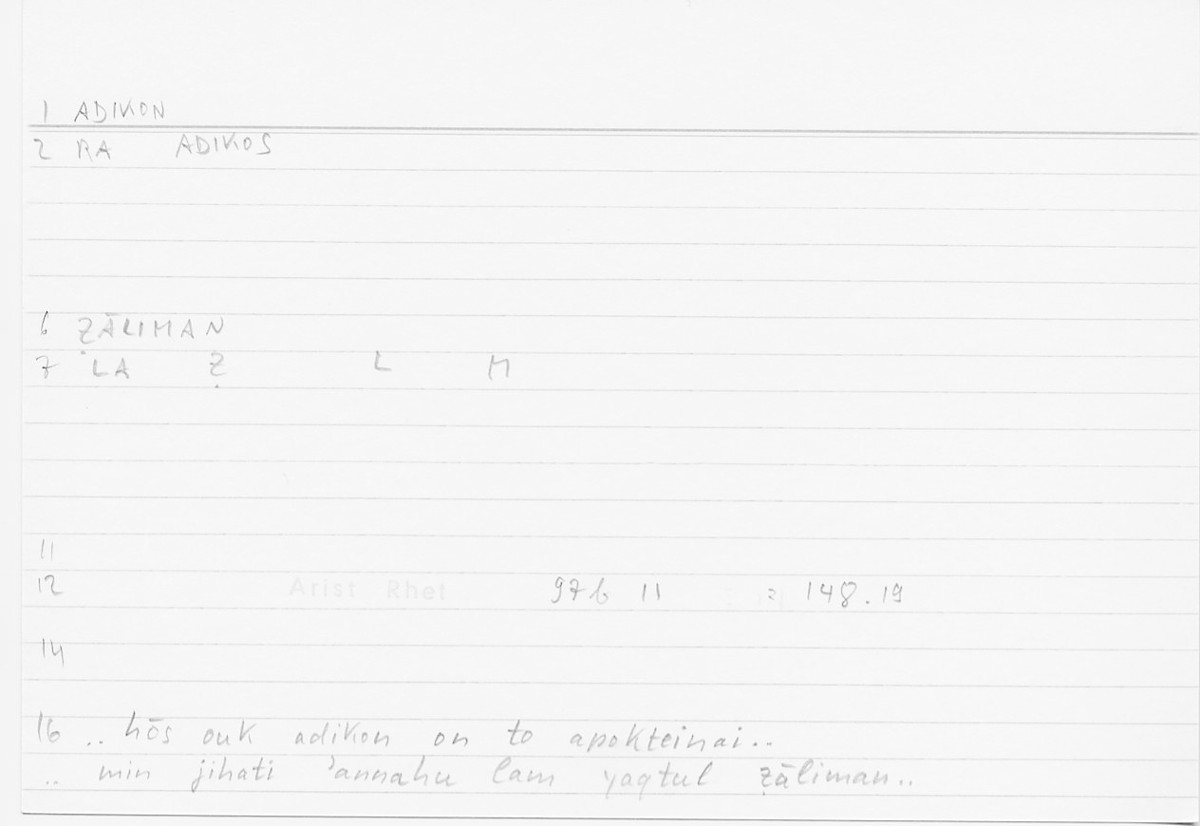 1 ADIKON
2 RA ADIKOS
6 ẒĀLIMAN
7 LA Ẓ L M
11
12 Arist Rhet 97b 11 = 148.19
14
16 .. hōs ouk adikon on to apokteinai..
.. min jihati ʾannahu lam yaqtul ẓāliman..